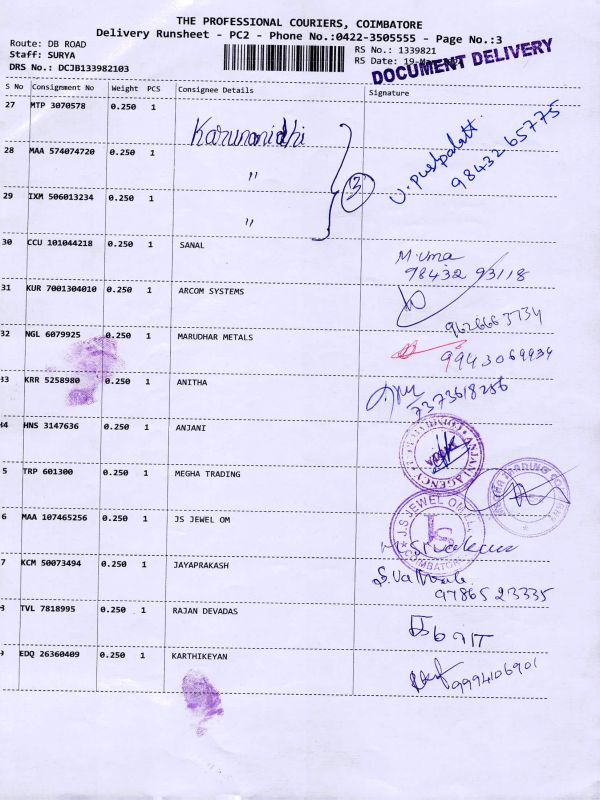 THE PROFESSIONAL COURIERS, COIMBATORE
Delivery Runsheet - PC2 - Phone No.:0422-3505555 - Page No.:3
Route: DB ROAD
Staff: SURYA
DRS No.: DCJB133982103
RS No.: 1339821
RS Date: 19-
DOCUMENT DELIVERY
S No Consignment No Weight PCS Consignee Details Signature
27 MTP 3070578 0.250 1 Karunanidhi
28 MAA 574074720 0.250 1 "
29 IXM 506013234 0.250 1 "
3
98432 65775
30 CCU 101044218 0.250 1 SANAL M.uma
98432 93118
31 KUR 7001304010 0.250 1 ARCOM SYSTEMS
32 NGL 6079925 0.250 1 MARUDHAR METALS
9943069934
33 KRR 5258980 0.250 1 ANITHA
7373618286
34 HNS 3147636 0.250 1 ANJANI
ANJANI AGENCY
5 TRP 601300 0.250 1 MEGHA TRADING
6 MAA 107465256 0.250 1 JS JEWEL OM
J.S JEWEL OM
JS
COIMBATORE
7 KCM 50073494 0.250 1 JAYAPRAKASH
97865 23335
8 TVL 7818995 0.250 1 RAJAN DEVADAS
9 EDQ 26360409 0.250 1 KARTHIKEYAN
9994106901